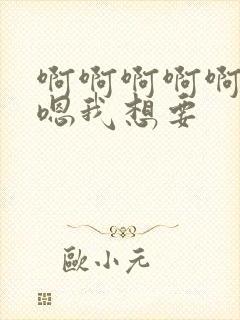 啊啊啊啊啊
嗯我想要
歐小元